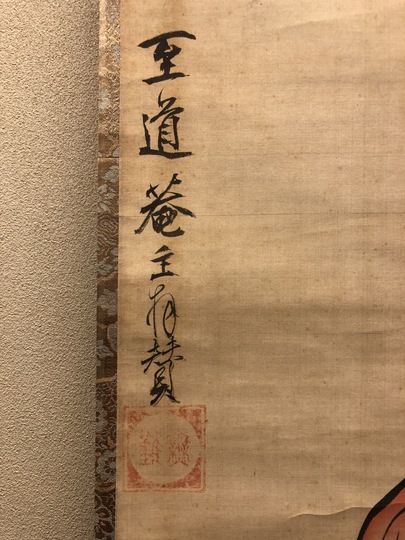 至道菴主拜賛